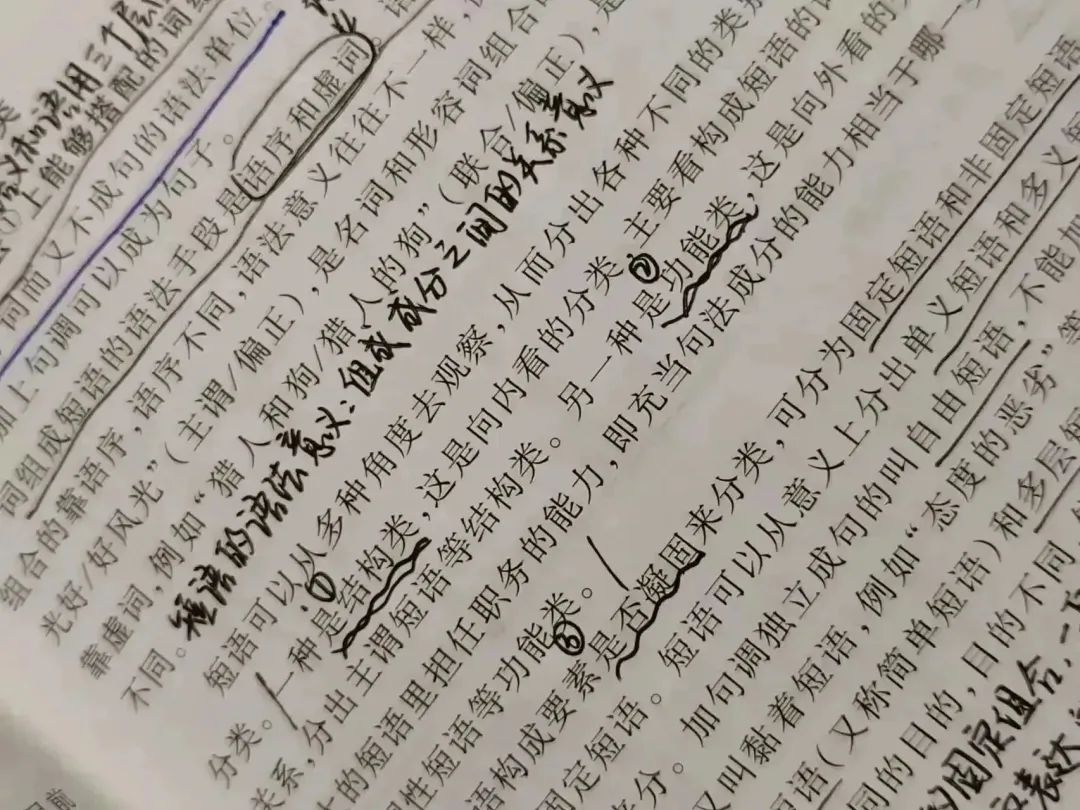 类
义和语用三个层
上能够搭配的词组
词而又不成句的语法单位。
加上句调可以成为句子。
词组成短语的语法手段是语序和虚词。
组合的靠语序，语序不同，语法意义往往不一样，
光好/好风光”（主谓/偏正），是名词和形容词组合
靠虚词，例如“猎人和狗/猎人的狗”（联合/偏正），是
不同。短语的语法意义：组成成分之间的关系意义
短语可以从多种角度去观察，从而分出各种不同的类
分类。一种是①结构类，这是向内看的分类，主要看构成短语的
关系，分出主谓短语等结构类。另一种是②功能类，这是向外看的
的短语里担任职务的能力，即充当句法成分的能力相当于哪一
性短语等功能类。
语构成要素是否③凝固来分类，可分为固定短语和非固定短语
固定短语。短语可以从意义上分出单义短语和多义
成分。加句调独立成句的叫自由短语，不能加
又叫黏着短语，例如“态度的恶劣”等
语（又称简单短语）和多层短
同的目的，目的不同
固定组合，一
表达